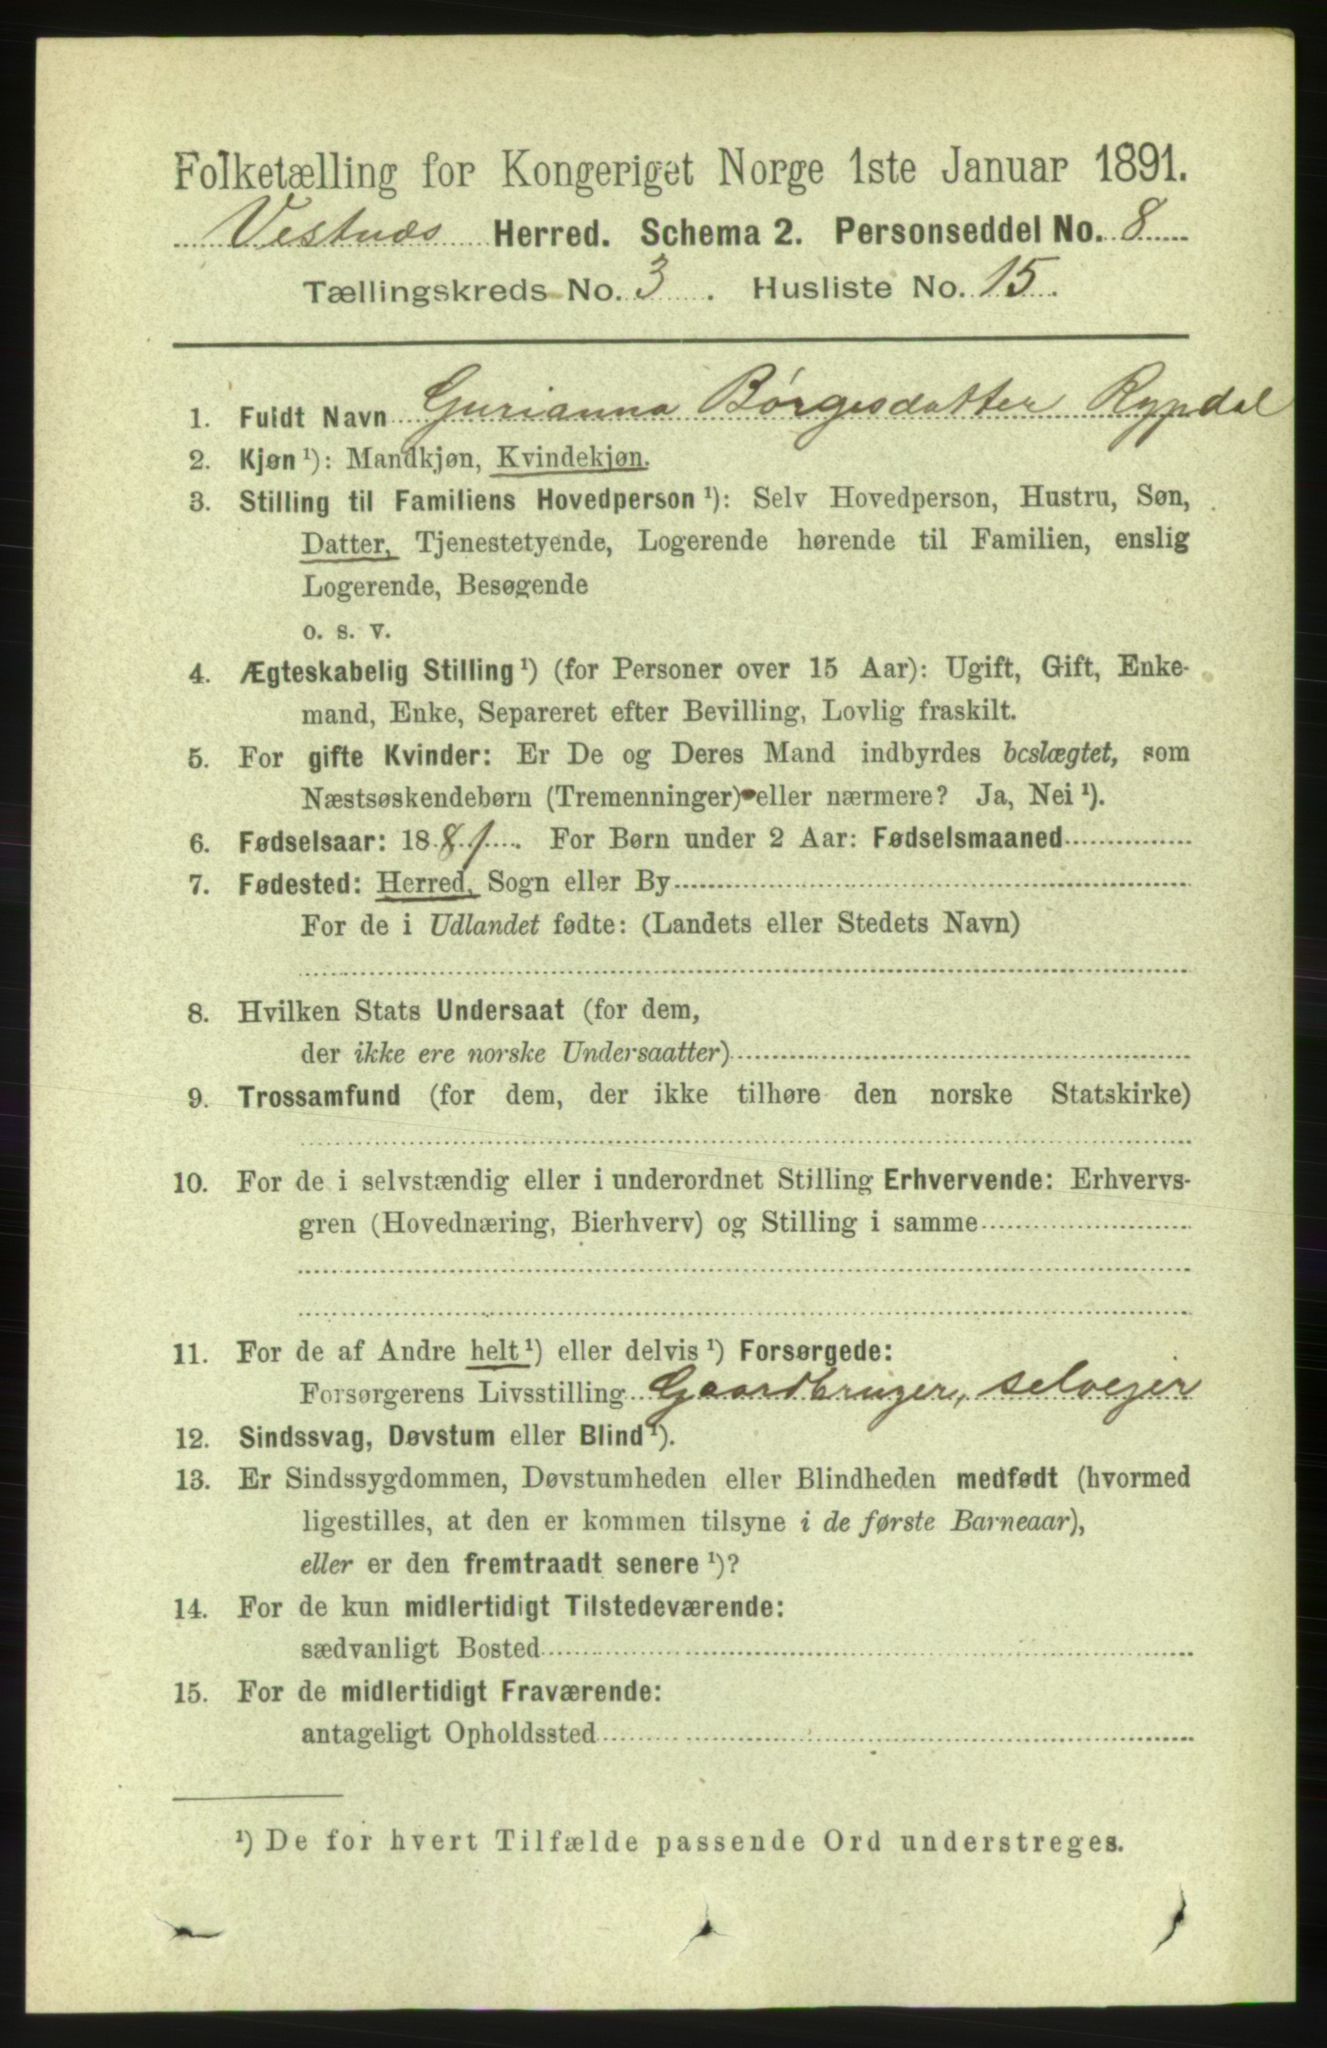 Folketælling for Kongeriget Norge 1ste Januar 1891.
Vestnæs Herred. Schema 2. Personseddel No. 8
Tællingskreds No. 3. Husliste No. 15.
1. Fuldt Navn Gurianna Børgesdatter Rypdal
2. Kjøn ¹): Mandkjøn, Kvindekjøn.
3. Stilling til Familiens Hovedperson ¹): Selv Hovedperson, Hustru, Søn,
Datter, Tjenestetyende, Logerende hørende til Familien, enslig
Logerende, Besøgende
o. s. v.
4. Ægteskabelig Stilling ¹) (for Personer over 15 Aar): Ugift, Gift, Enke-
mand, Enke, Separeret efter Bevilling, Lovlig fraskilt.
5. For gifte Kvinder: Er De og Deres Mand indbyrdes beslægtet, som
Næstsøskendebørn (Tremenninger) eller nærmere? Ja, Nei ¹).
6. Fødselsaar: 1881. For Børn under 2 Aar: Fødselsmaaned
7. Fødested: Herred, Sogn eller By
For de i Udlandet fødte: (Landets eller Stedets Navn)
8. Hvilken Stats Undersaat (for dem,
der ikke ere norske Undersaatter)
9. Trossamfund (for dem, der ikke tilhøre den norske Statskirke)
10. For de i selvstændig eller i underordnet Stilling Erhvervende: Erhvervs-
gren (Hovednæring, Bierhverv) og Stilling i samme
11. For de af Andre helt ¹) eller delvis ¹) Forsørgede:
Forsørgerens Livsstilling Gaardbruger, selveier
12. Sindssvag, Døvstum eller Blind ¹).
13. Er Sindssygdommen, Døvstumheden eller Blindheden medfødt (hvormed
ligestilles, at den er kommen tilsyne i de første Barneaar),
eller er den fremtraadt senere ¹)?
14. For de kun midlertidigt Tilstedeværende:
sædvanligt Bosted
15. For de midlertidigt Fraværende:
antageligt Opholdssted
¹) De for hvert Tilfælde passende Ord understreges.